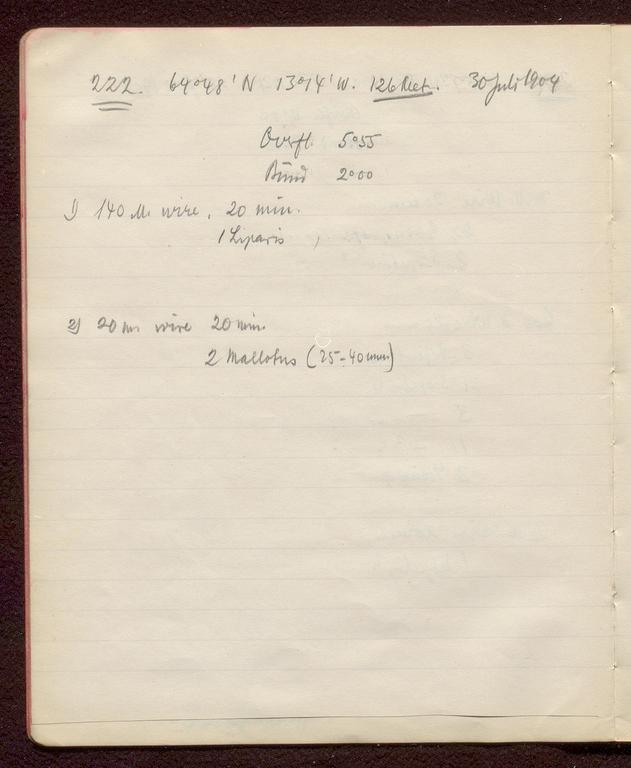 222. 64°48' N 13°14' W. 126 Met. 30 Juli 1904
Overfl. 5°55
Bund 2°00
1) 140 M. wire, 20 min.
1 Liparis,
2) 20 m. wire 20 min.
2 Mallotus (25-40 mm)